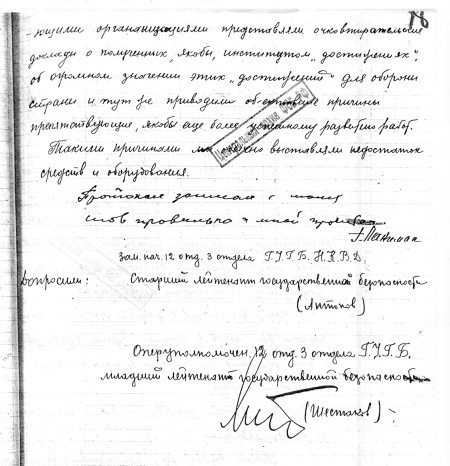 78
-ющими организациями представляли очковтирательские
доклады о полученных, якобы, институтом „достижениях",
об огромном значении этих „достижений" для обороны
страны и тут же приводили объективные причины
препятствующие, якобы еще более успешному развитию работ.
Такими причинами выставляли недостаток
средств и оборудования.
Протокол записан с моих
слов правильно и мной
Зам. нач. 12 отд. 3 отдела Г.У.Г.Б. Н.К.В.Д.
Допросили: Старший лейтенант государственной безопасности
(Антонов)
Оперуполномочен. 12 отд. 3 отдела Г.У.Г.Б.
младший лейтенант государственной безопасности
(Шестаков)